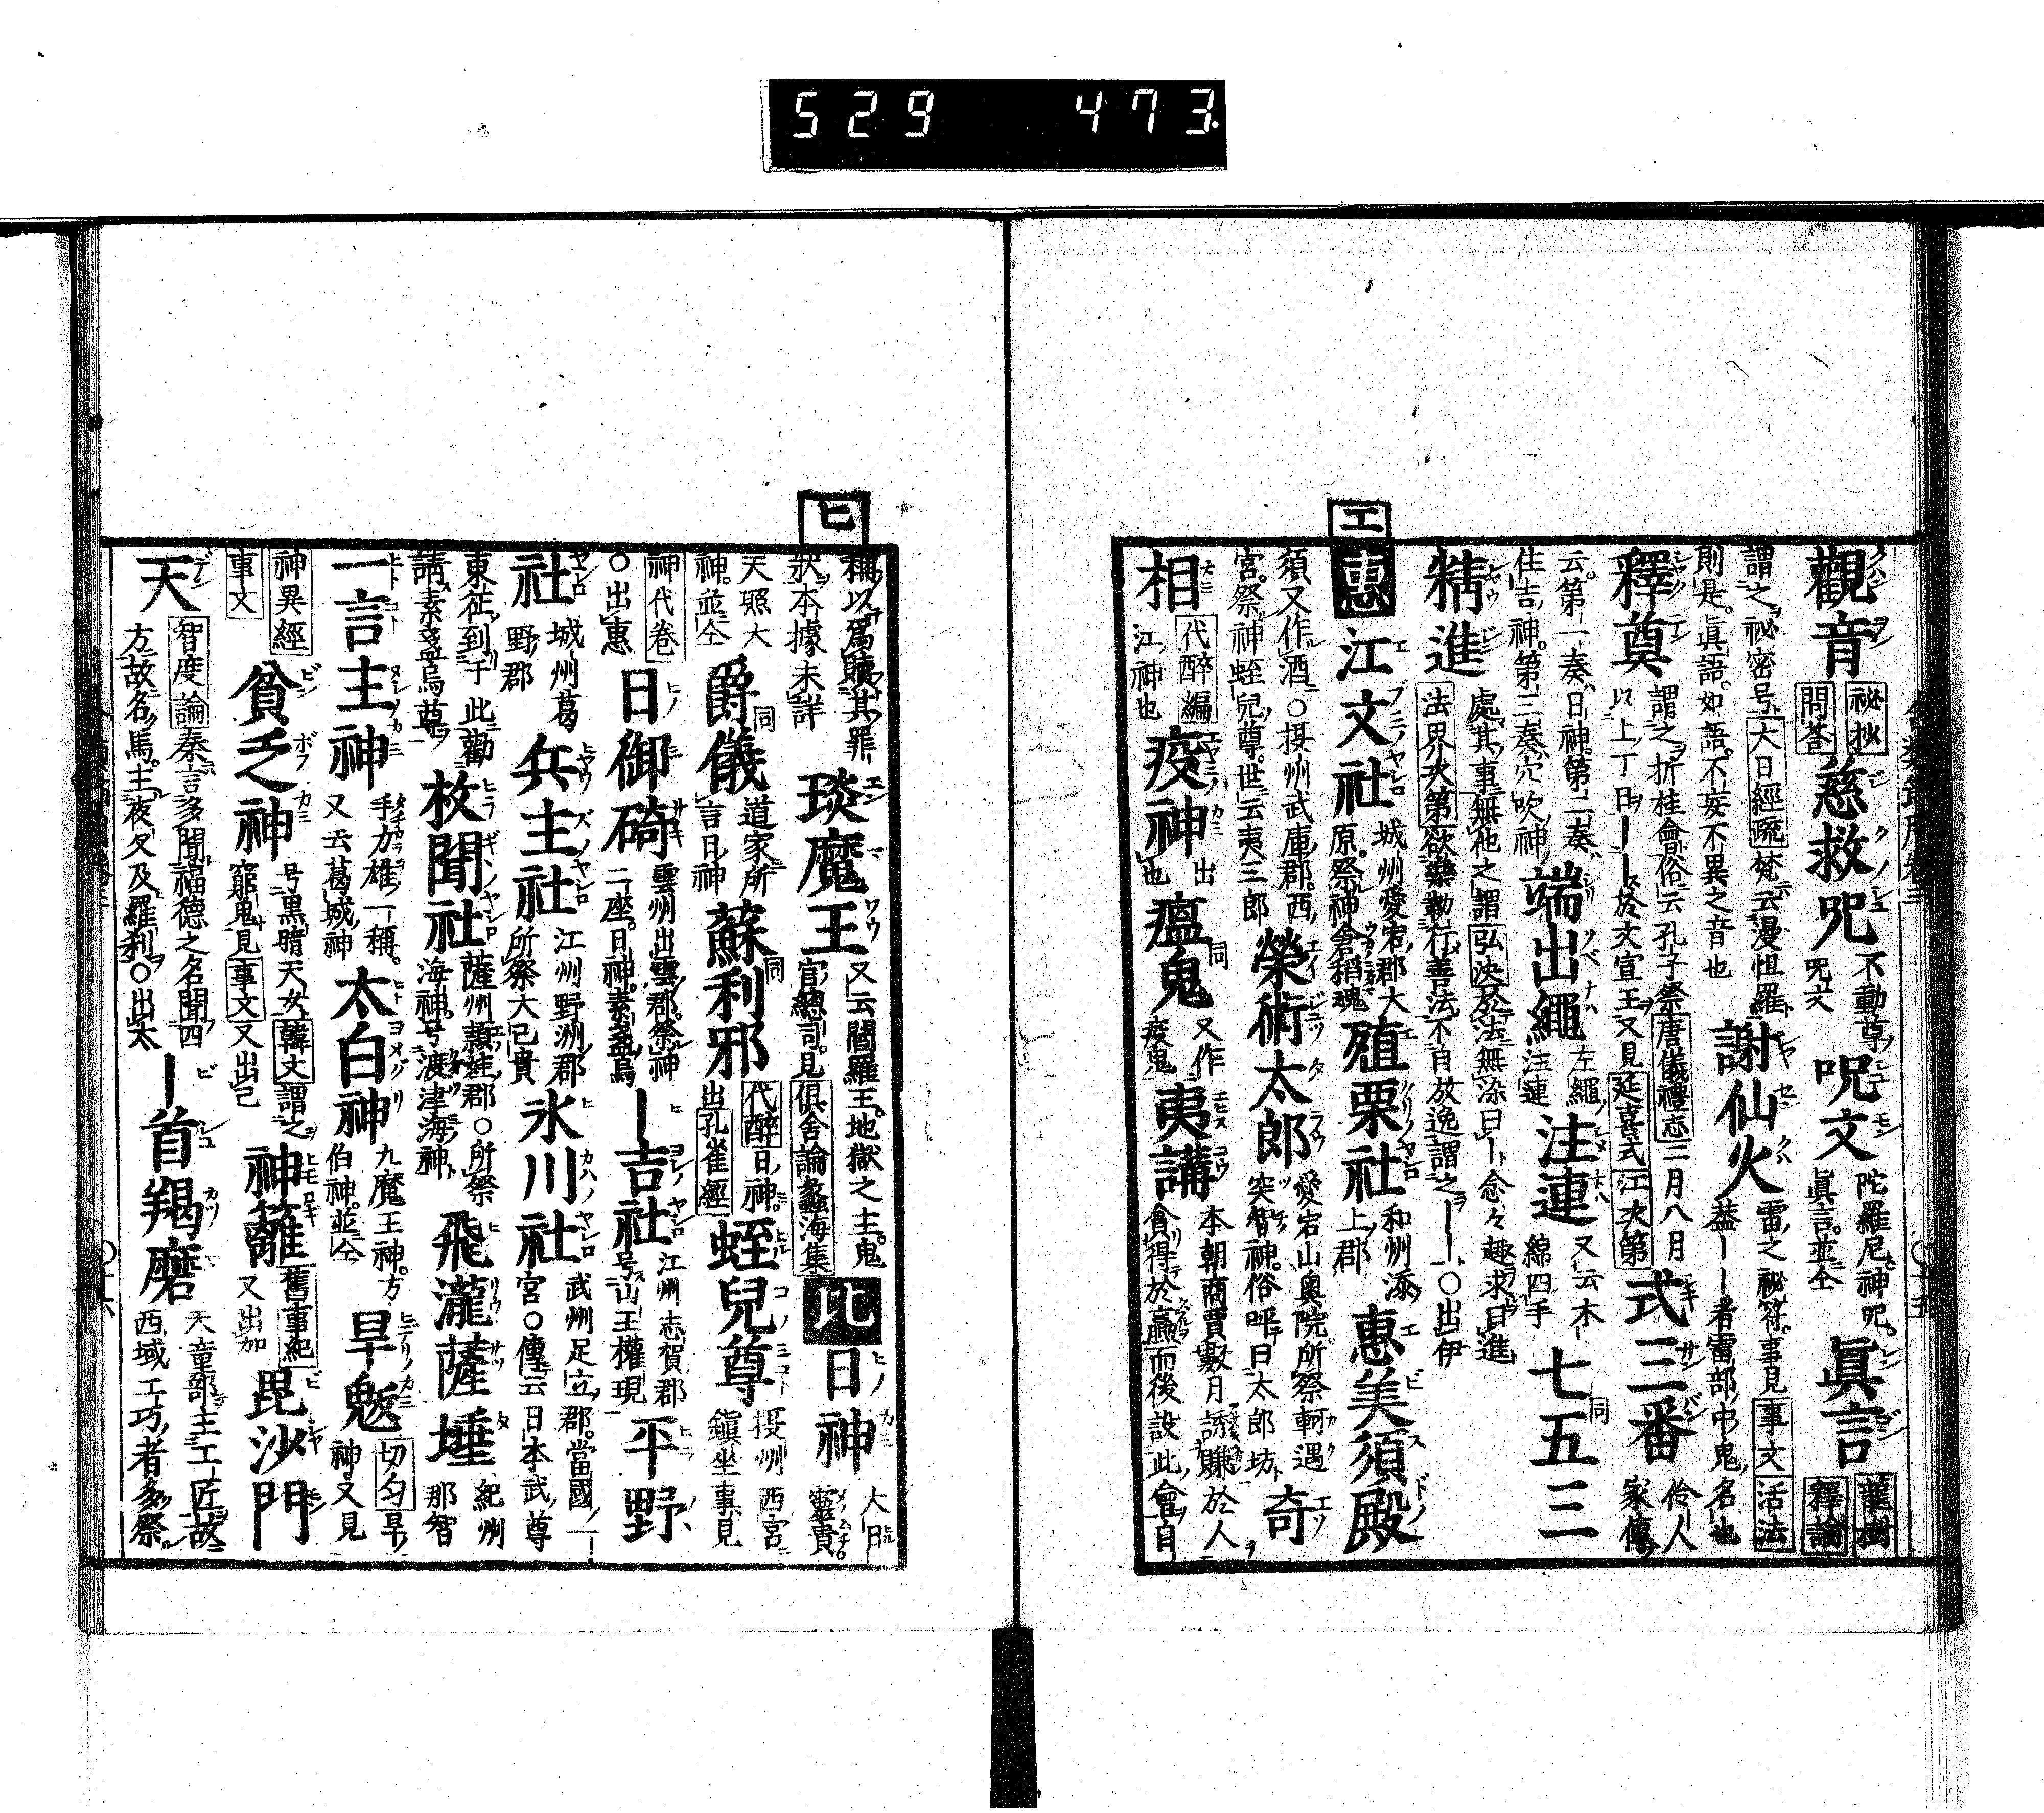 529 473
觀音 祕抄問荅 慈救呪 不動尊呪文 呪文 陀羅尼。神呪。眞言。並仝 眞言 龍樹釋論
謂之祕密号 大日經疏 梵云漫怛羅 則是。眞語。如語。不妄不異之音也 謝仙火 雷之祕符。事見 事文 活法 葢——者雷部中鬼名也
釋奠 謂之折桂會俗云孔子祭 唐儀禮志 二月八月以上丁日——於文宣王又見 延喜式 江次第 式三番 伶人家傳
云。第一奏日神。第二奏住吉神。第三奏穴吹神 端出繩 左繩注連 注連 又云木綿四手 七五三 同
精進 處其事無他之謂 弘决 於法無染曰—念々趣求曰進 法界次第 欲樂勤行善法不自放逸謂之——○出伊
エ 惠 江文社 城州愛宕郡大原。祭神倉稻魂 殖栗社 和州添上郡 惠美須殿
須又作酒○摂州武庫郡。西宮。祭神蛭兒尊。世云夷三郎 榮術太郎 愛宕山奥院所祭軻遇突智神。俗呼曰太郎坊 奇
相 代醉編 江神也 疫神 出也 瘟鬼 同 又作疫鬼 夷講 本朝商賈數月謗賺於人貪得於贏而後設此會自
稱以爲贖其罪狀本據未詳 琰魔王 又云閻羅王。地獄之主。鬼官總司。見 俱舍論 蠡海集
ヒ 比 日神 大日孁貴。
天照大神。並仝 爵儀 同 道家所言日神 蘇利邪 同 代醉 日神。出 孔雀經 蛭兒尊 摂州西宮鎭坐事見
神代卷 ○出惠 日御碕 雲州出雲郡。祭神二座。日神。素盞烏 —吉社 江州志賀郡号山王權現 平野
社 城州葛野郡 兵主社 江州野洲郡所祭大己貴 氷川社 武州足立郡。當國一宮○傳云日本武尊
東征到于此勸請素盞烏尊 枚聞社 薩州頴娃郡○所祭海神。号渡津海神 飛瀧薩埵 紀州那智
一言主神 手力雄一稱。又云葛城神 太白神 九魔王神。方伯神。並仝 旱魃 切匀 旱神又見
神異經 事文 貧乏神 号黒暗天女 韓文 謂之窮鬼見 事文 又出己 神籬 舊事紀 又出加 毘沙門
天 智度論 秦言多聞福德之名聞四方故名焉。主夜叉及羅刹○出太 —首羯磨 天童部主工匠故西域工巧者多祭